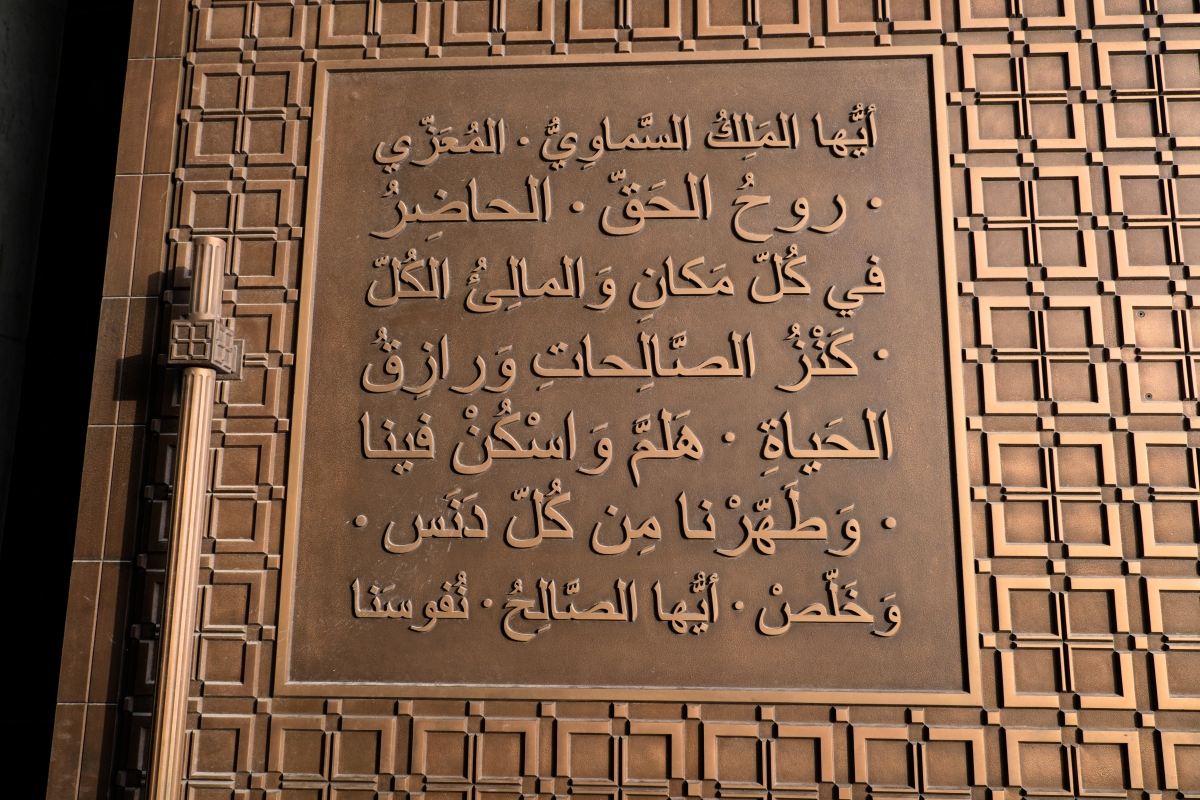 أيُّها المَلِكُ السَّماوِيُّ · المُعَزّي
· روحُ الحَقّ · الحاضِرُ
في كُلّ مَكانٍ وَالمالِئُ الكُلّ
· كَنْزُ الصَّالِحاتِ وَرازِقُ
الحَياةِ · هَلمَّ وَاسْكُنْ فينا
· وَطَهّرْنا مِن كُلّ دَنَس ·
وَخَلّصْ · أيُّها الصَّالِحُ · نُفوسَنا